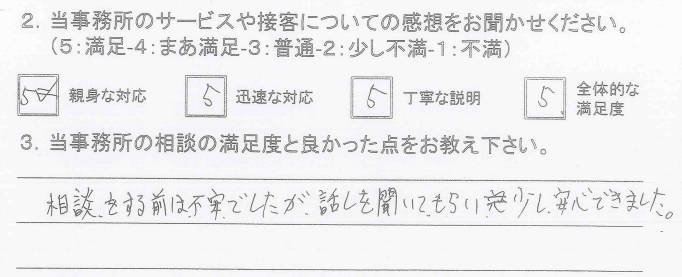 2. 当事務所のサービスや接客についての感想をお聞かせください。
(5:満足-4:まあ満足-3:普通-2:少し不満-1:不満)
5 親身な対応 5 迅速な対応 5 丁寧な説明 5 全体的な満足度
3. 当事務所の相談の満足度と良かった点をお教え下さい。
相談をする前は不安でしたが、話しを聞いてもらい少し安心できました。